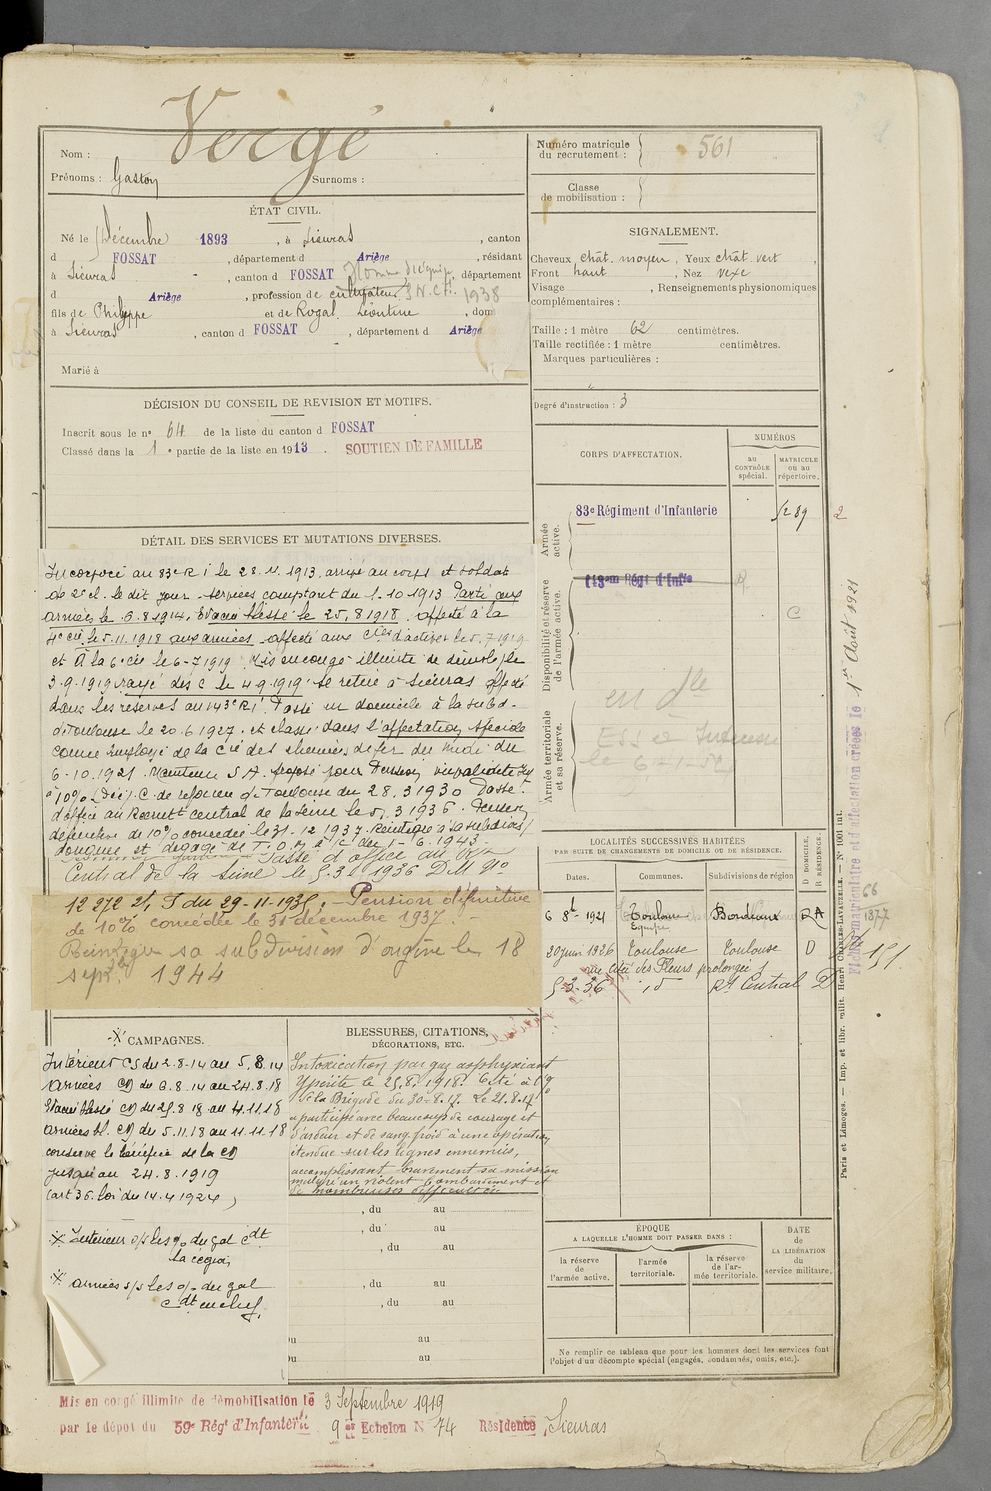 Vergé
Nom :
Prénoms : Gaston Surnoms :
Numéro matricule du recrutement : 561
Classe de mobilisation :
ÉTAT CIVIL.
Né le Décembre 1893, à Sieuras, canton
d FOSSAT, département d Ariège, résidant
à Sieuras, canton d FOSSAT, département
d Ariège, profession de cultivateur S.N.C.F. 1938
Homme d'équipe
fils de Philippe et de Rogal Léontine, dom
à Sieuras, canton d FOSSAT, département d Ariège
Marié à
SIGNALEMENT.
Cheveux chât. moyen, Yeux chât. vert,
Front haut, Nez vexe
Visage , Renseignements physionomiques
complémentaires :
Taille : 1 mètre 62 centimètres.
Taille rectifiée : 1 mètre centimètres.
Marques particulières :
Degré d'instruction : 3
DÉCISION DU CONSEIL DE REVISION ET MOTIFS.
Inscrit sous le n° 64 de la liste du canton d FOSSAT
Classé dans la 1e partie de la liste en 1913. SOUTIEN DE FAMILLE
DÉTAIL DES SERVICES ET MUTATIONS DIVERSES.
Incorporé au 83e R I le 28.11.1913, arrivé au corps et soldat
de 2e cl. le dit jour. Services comptant du 1.10.1913 Parti aux
armées le 6.8.1914, Evacué blessé le 25.8.1918 affecté à la
4e Cie le 5.11.1918 aux armées affecté aux Cies d'active le 5.7.1919
et à la 6e Cie le 6-7.1919 Mis en congé illimité de démob. le
3.9.1919 rayé des c. le 4.9.1919 se retire à Sieuras affecté
dans les réserves au 143e RI. Passé en domicile à la subd.
de Toulouse le 20.6.1927. et classé dans l'affectation spéciale
comme employé de la Cie des chemins de fer du midi du
6.10.1921. Maintenu S.A. proposé pour Pension invalidité
à 10% C. de réforme de Toulouse du 28.3.1930 Passé
d'office au Recrutt central de la Seine le 5.3.1936. Pension
définitive de 10% concédée le 31-12 1937. Réintègre sa subdivis/
d'origine et dégagé de T.O.M. à/c du 1-6.1943.
Passé d'office au Rt
Central de la Seine le 5.3.1936 D.M. N°
12 272 2/1 I du 29-11-1935. Pension définitive
de 10% concédée le 31 décembre 1937
Réintègre sa subdivision d'origine le 18
septbre 1944
CORPS D'AFFECTATION.
NUMÉROS
au CONTRÔLE spécial.
MATRICULE ou au répertoire.
Armée active.
83e Régiment d'Infanterie
Disponibilité et réserve de l'armée active.
R
C
Armée territoriale et sa réserve.
LOCALITÉS SUCCESSIVES HABITÉES
PAR SUITE DE CHANGEMENTS DE DOMICILE OU DE RÉSIDENCE.
Dates. Communes. Subdivisions de région D DOMICILE, R RÉSIDENCE.
6 8bre 1921 Toulouse Bordeaux RA
20 juin 1926 Toulouse Toulouse D
rue Cité des Fleurs prolongée
5-3-36 id Rt Central D
151
CAMPAGNES.
Intérieur CS du 2-8-14 au 5.8.14
Armées CD du 6.8.14 au 24.8.18
Evacué blessé CD du 25.8.18 au 4.11.18
Armées bl. CD du 5.11.18 au 11.11.18
conserve le bénéfice de la CD
jusqu'au 24.8.1919
(art 36 loi du 14.4.1924)
Intérieur s/s les o/ du gal Cdt
la région
Armées s/s les o/ du gal
Cdt en chef.
BLESSURES, CITATIONS,
DÉCORATIONS, ETC.
Intoxication par gaz asphyxiant
Ypérite le 25.8.1918. Cité à l'O
de la Brigade du 30-8.17. Le 21.8.17
a participé avec beaucoup de courage et
d'ardeur et de sang froid à une opération
étendue sur les lignes ennemies,
accomplissant bravement sa mission
malgré un violent bombardement et
de nombreuses difficultés
, du au
, du au
, du au
, du au
, du au
Du au
Du au
ÉPOQUE
A LAQUELLE L'HOMME DOIT PASSER DANS :
la réserve de l'armée active.
l'armée territoriale.
la réserve de l'armée territoriale.
DATE DE LA LIBÉRATION du service militaire.
Ne remplir ce tableau que pour les hommes dont les services font
l'objet d'un décompte spécial (engagés, condamnés, omis, etc.).
Paris et Limoges. — Imp. et libr. milit. Henri CHARLES-LAVAUZELLE. — N° 1001 int.
Fiches matriculaire et d'affectation créées le 1er Août 1921
Mis en congé illimité de démobilisation le 3 Septembre 1919
par le dépôt du 59e Régt d'Infanterie 9e Echelon N° 74 Résidence Sieuras